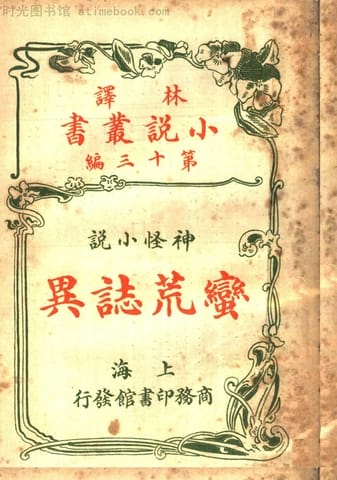 时光图书馆 atimebook.com
林譯
小說叢書
第十三編
神怪小說
蠻荒誌異
上海
商務印書館發行